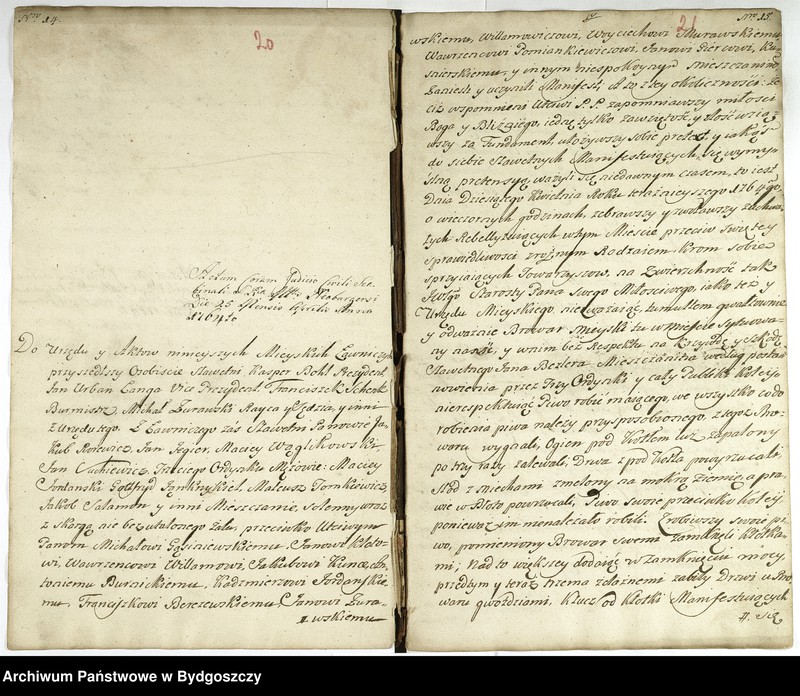 Nro 14.
20
Actum coram Judicio Civili Sca-
binali
Die 25 Mensis Aprilis Anno
1764to
Do Urzędu y Aktow ninieyszych Mieyskich Ławniczych
przyszedszy Osobiscie Sławetni Kasper Bohl Prezydent
Jan Urban Langa Vice Prezydent, Franciszek Schenk
Burmistrz, Michał Zurawski Rayca y Sędzia, y inni
z Urzędu tego. z Ławniczego zas Sławetni Panowie Ja-
kub Rorewicz, Jan Jegier, Maciey Węglikowski
Jan Trzeciego Ordynku Męzowie: Maciey
Jordanski Gottfryd Mateusz Tomkiewicz
Jakob Salamon y inni Mieszczanie, solenny wraz
z skargą nie bez utalonego zalu, przeciwko Utciwym
Panom Michałowi Gąsiniewskiemu, Janowi
wi, Wawrzencowi Willamowi, Jakubowi An-
toniemu Kazimierzowi Jordanskie-
mu, Franciszkowi Berezewskiemu, Janowi Zura-
wskiemu
21
Nro 15.
wskiemu, Willamowiczowi, Woyciechowi Murawskiemu
Wawrzencowi Pomiankiewiczowi, Janowi
snierskiemu, y innym niespokoynym mieszczanom
Zaniesli y uczynili Manifest, A to z tey okolicznosci: Ze
ciz wspomnieni Utciwi P.P. zapomniawszy miłosci
Boga y Blizniego, iedne tylko zawziętosc, y złosc wzią-
wszy za Fundament, ułozywszy sobie pretext y iakąs
do siebie Sławetnych Manifestuiących się wymy-
slną pretensyą, wazyli się niedawnym czasem, to iest
Dnia Dziesiątego Kwietnia Roku teraznieyszego 1764go
o wieczornych godzinach, zebrawszy y zwoławszy zuchwa-
łych Rebellizuiących w tym Miescie przeciw Swiętey
Sprawiedliwosci z roznym Rodzaiem Brom sobie
sprzyiaiących Towarzyszow, na Zwierzchnosc tak
JWgo Starosty Pana Swego Miłosciwego, iako tez y
Urzędu Mieyskiego, nie uwazaiąc, tumultem gwałtownie
y odwaznie Browar Mieyski tu w miescie sytuowa-
ny naysc, y w nim bez Respektu na Krzywdę y szkodę
Sławetnego Jana Bezlera Mieszczanina według posta-
nowienia przez Trzy Ordynki y cały Publik koleją
nierespektuiąc Piwo robic maiącego, we wszystko co do
robienia piwa nalezy przysposobionego, z tego Bro-
waru wygnali, Ogien pod Kotłem iuz zapalony
po trzy razy zalewali, Drwa z pod Kotła powyrzucali
Słod z miechami zmelony na mokrą ziemię, a pra-
wie w Błoto powrzucali, Piwo swoie przeciwko koley
poniewaz im nienalezało robili. Zrobiwszy swoie pi-
wo, pomieniony Browar Swemi zamkneli kłotka-
mi; Nad to większey dodaiąc w zamknięciu mocy
przedtym y teraz trzema zelaznemi zabili Drzwi u Bro-
waru gwozdziami, Klucz od kłotki Manifestuiących
Archiwum Państwowe w Bydgoszczy